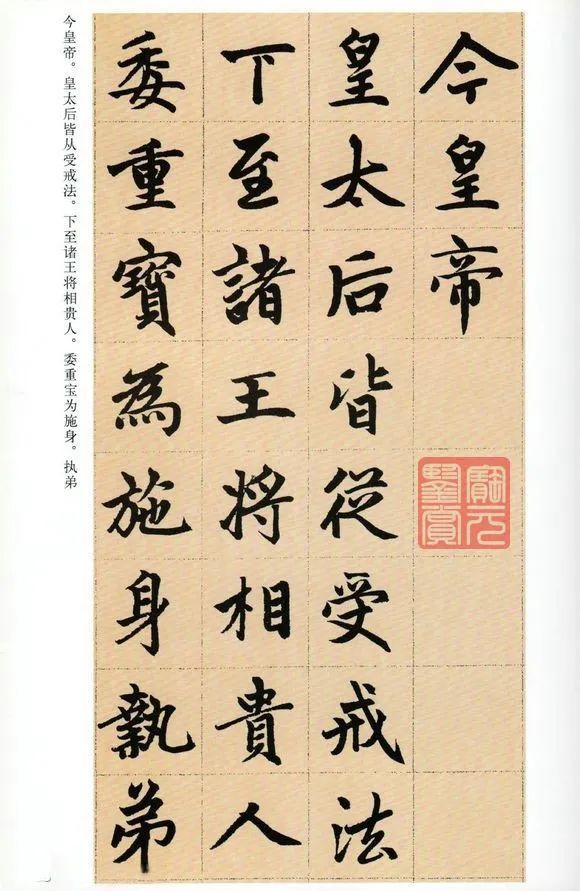 今皇帝
皇太后皆從受戒法
下至諸王將相貴人
委重寶為施身執弟
今皇帝。皇太后皆从受戒法。下至诸王将相贵人。委重宝为施身。执弟
寶元
鑒賞